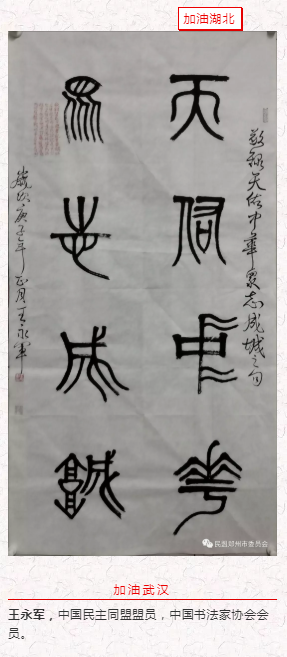 加油湖北
敬録天佑中華眾志成城之句
天佑中華
眾志成城
歲次庚子年正月王永軍
民盟郑州市委员会
加油武汉
王永军，中国民主同盟盟员，中国书法家协会会
员。